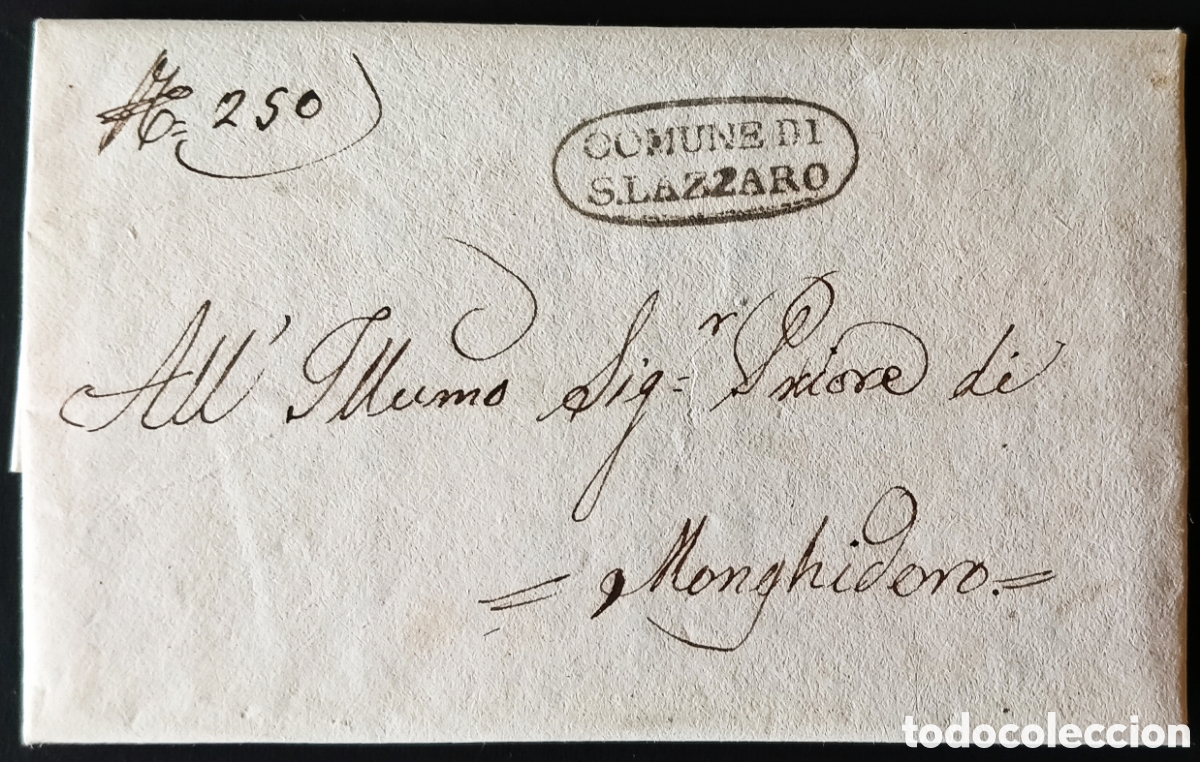 N.= 250
COMUNE DI
S.LAZZARO
All' Illumo Sig=r Priore di
= Monghidoro.=
todocoleccion